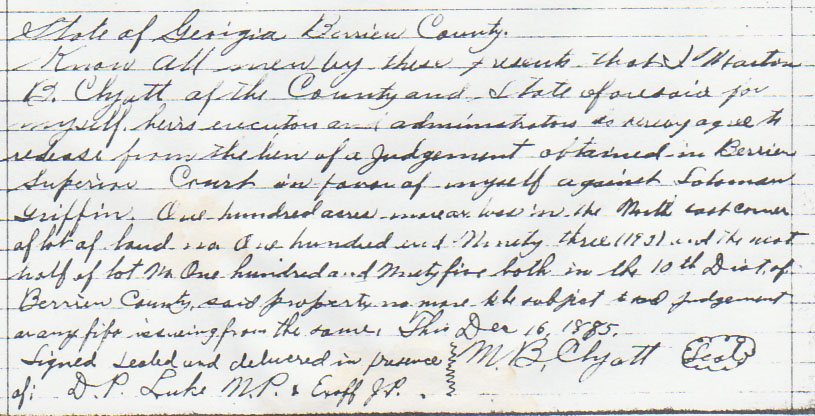 State of Georgia Berrien County.
Know all men by these presents that I Marion
B. Clyatt of the County and State aforesaid for
myself, heirs executors and administrators do hereby agree to
release from the lien of a Judgement obtained in Berrien
Superior Court in favor of myself against Solomon
Griffin. One hundred acres more or less in the North east corner
of lot of land no One hundred and Ninety three (193) and the west
half of lot No One hundred and Ninety five both in the 10th Dist. of
Berrien County, said property no more to be subject to said judgement
or any fifa issueing from the same. This Dec 16, 1885.
Signed sealed and delivered in presence M. B. Clyatt Seal
of: D. P. Luke N.P. & Exoff J.P.